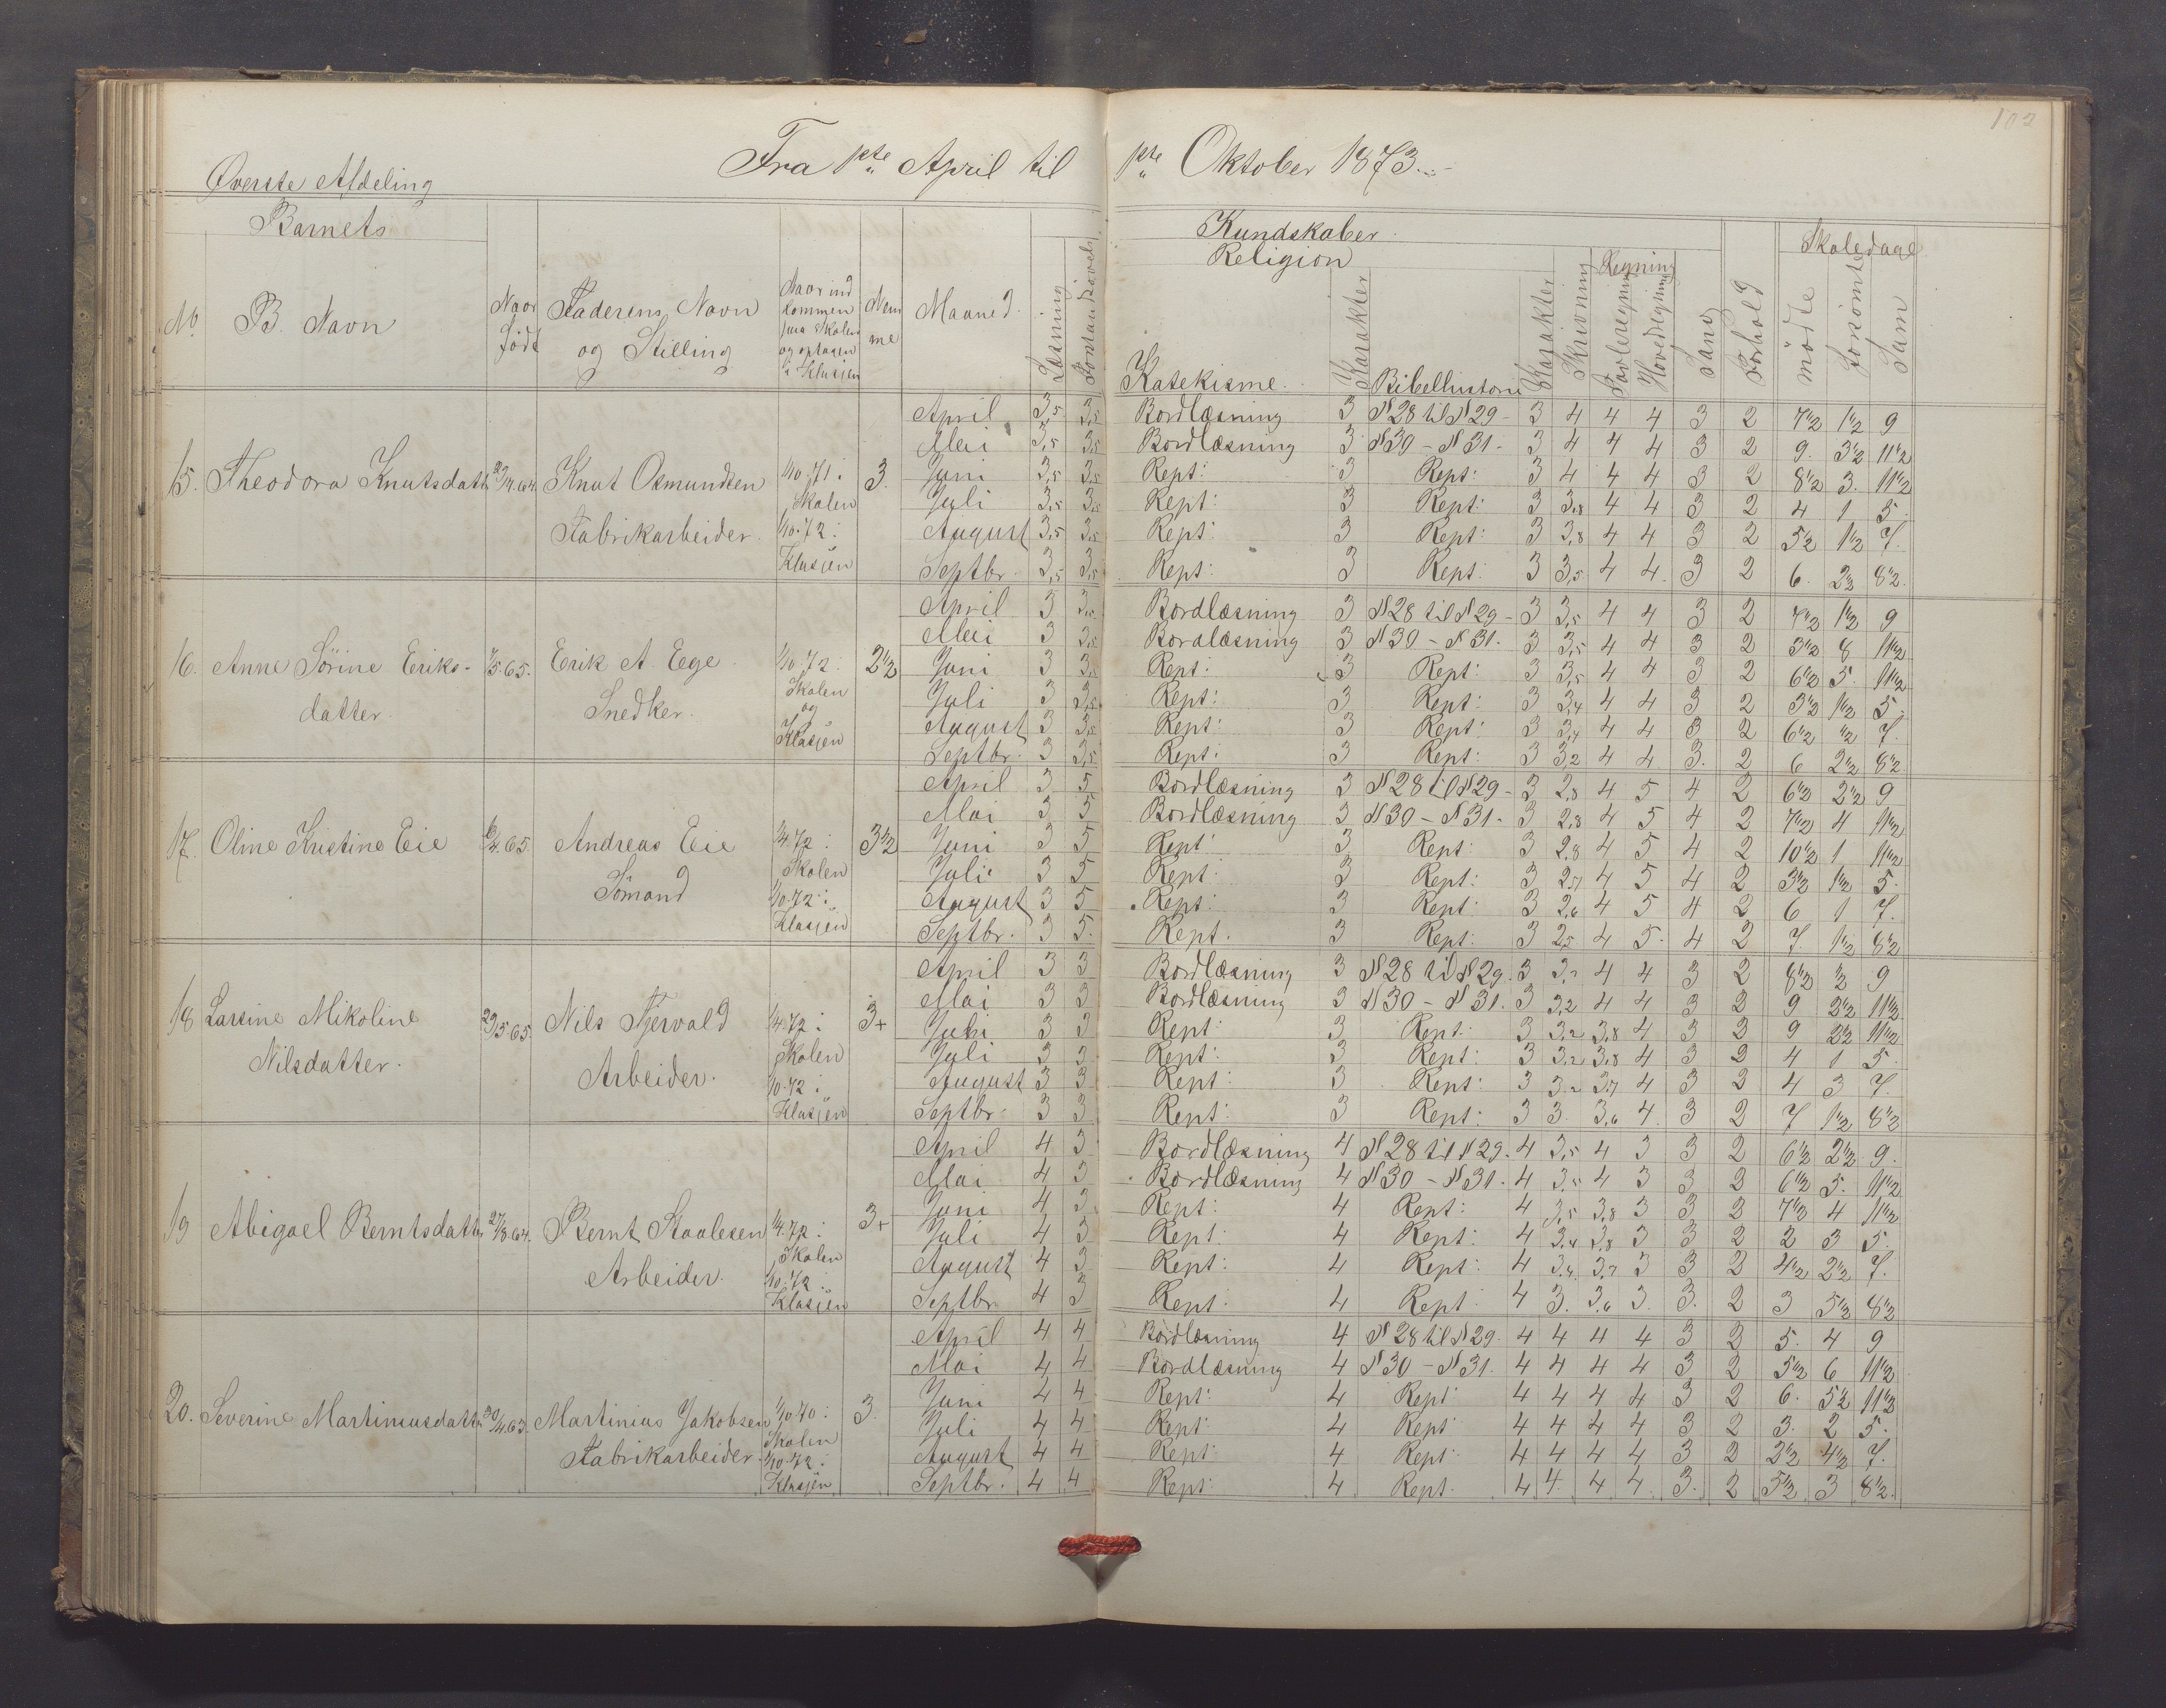 102
Fra 1ste April til 1ste Oktober 1873.
Øverste Afdeling
Barnets
No. B. Navn
Naar Født
Faderens Navn og Stilling
Naar ind kommen paa Skolen og optagen i Klassen
Nem me
Maaned
Læsning
Forstandsøvels
Kundskaber
Religion
Katekisme
Karakter
Bibelhistorie
Karakter
Skrivning
Regning
Tavleregning
Hovedregning
Sang
Forhold
Skoledage
mødte
forsømte
Sum
15. Theodora Knutsdatt. 23/4.64. Knut Osmundsen Fabrikarbeider. 1/10.71 i Skolen 1/10.72 i Klassen 3.
April 3,5 3,5 Bordlæsning 3 N28 til N29 - 3 4 4 4 3 2 7 1/2 1 1/2 9
Mai 3,5 3,5 Bordlæsning 3 N30 - N31. 3 4 4 4 3 2 9. 3 1/2 11 1/2
Juni 3,5 3,5 Rept: 3 Rept: 3 4 4 4 3 2 8 1/2 3. 11 1/2
Juli 3,5 3,5 Rept: 3 Rept: 3 3,8 4 4 3 2 4 1 5.
August 3,5 3,5 Rept: 3 Rept: 3 3,8 4 4 3 2 5 1/2 1 1/2 7.
Septbr. 3,5 3,5 Rept: 3 Rept. 3 3,5 4 4. 3 2 6. 2 1/2 8 1/2.
16. Anne Sørine Eriks-datter. 7/5.65. Erik A. Eege Snedker. 1/10.72 i Skolen og Klassen 2 1/2
April 3 3,5 Bordlæsning 3 N28 til N29 - 3 3,5 4 4 3 2 7 1/2 1 1/2 9
Mai 3 3,5 Bordlæsning 3 N30 - N31. 3 3,5 4 4 3 2 3 1/2 8 11 1/2
Juni 3 3,5 Rept: 3 Rept: 3 3,5 4 4 3 2 6 1/2 5. 11 1/2
Juli 3 3,5 Rept: 3 Rept: 3 3,4 4 4 3 2 3 1/2 1 1/2 5.
August 3 3,5 Rept: 3 Rept: 3 3,4 4 4 3 2 6 1/2 1/2 7.
Septbr. 3 3,5 Rept: 3 Rept: 3 3,2 4 4 3. 2 6 2 1/2 8 1/2
17. Oline Kristine Eie Andreas Eie Sømand 1/4.72 i Skolen 1/10.72 i Klassen 3 1/2
April 3 5 Bordlæsning 3 N28 til N29 - 3 2,8 4 5 4 2 6 1/2 2 1/2 9
Mai 3 5 Bordlæsning 3 N30 - N31. 3 2,8 4 5 4 2 7 1/2 4 11 1/2
Juni 3 5 Rept: 3 Rept: 3 2,8 4 5 4 2 10 1/2 1 11 1/2
Juli 3 5 Rept: 3 Rept: 3 2,7 4 5 4 2 3 1/2 1 1/2 5.
August 3 5 Rept: 3 Rept: 3 2,6 4 5 4 2 6 1 7.
Septbr. 3 5. Rept. 3 Rept: 3 2,5 4 5. 4 2 7. 1 1/2 8 1/2
18 Larsine Mikoline Nilsdatter. 29/5.65. Nils Tjervald Arbeider. 1/4.72 i Skolen 1/10.72 i Klassen 3+
April 3 3 Bordlæsning 3 N28 til N29. 3 3,2 4 4 3 2 8 1/2 1/2 9
Mai 3 3 Bordlæsning 3 N30 - N31. 3 3,2 4 4 3 2 9 2 1/2 11 1/2
Juni 3 3 Rept: 3 Rept: 3 3,2 3,8 4 3 2 9 2 1/2 11 1/2
Juli 3 3 Rept: 3 Rept: 3 3,2 3,8 4 3 2 4 1 5.
August 3 3 Rept: 3 Rept: 3 3,2 3,7 4 3 2 4 3 7.
Septbr. 3 3 Rept: 3 Rept: 3 3. 3,6 4. 3 2 7 1 1/2 8 1/2
19 Abigael Berntsdatt. 27/3.64. Bernt Staalesen Arbeider. 1/4.72 i Skolen 1/10.72 i Klassen 3+
April 4 3 Bordlæsning 4 N28 til N29. 4 3,5 4 3 3 2 6 1/2 2 1/2 9.
Mai 4 3 Bordlæsning 4 N30 - N31. 4 3,5 4 3 3 2 6 1/2 5. 11 1/2
Juni 4 3 Rept: 4 Rept: 4 3,5 3,8 3 3 2 7 1/2 4 11 1/2
Juli 4 3 Rept: 4 Rept: 4 3,4 3,8 3 3 2 2 3 5.
August 4 3 Rept: 4 Rept: 4 3,4 3,7 3 3 2 4 1/2 2 1/2 7.
Septbr. 4 3 Rept: 4 Rept: 4 3. 3,6 3. 3. 2 3 5 1/2 8 1/2
20. Severine Martiniusdatt. 30/4.63. Martinius Jakobsen Fabrikarbeider. 1/10.70 i Skolen 1/10.72 i Klassen 3.
April 4 4 Bordlæsning 4 N28 til N29. 4 4 4 4 3 2 5. 4 9
Mai 4 4 Bordlæsning 4 N30 - N31. 4 4 4 4 3 2 5 1/2 6 11 1/2
Juni 4 4 Rept: 4 Rept 4 4 4 4 3 2 6. 5 1/2 11 1/2
Juli 4 4 Rept: 4 Rept 4 4 4 4 3 2 3. 2 5.
August 4 4 Rept: 4 Rept 4 4 4 4 3 2 2 1/2 4 1/2 7.
Septbr. 4 4 Rept: 4 Rept. 4 4. 4 4. 3. 2 5 1/2 3 8 1/2.